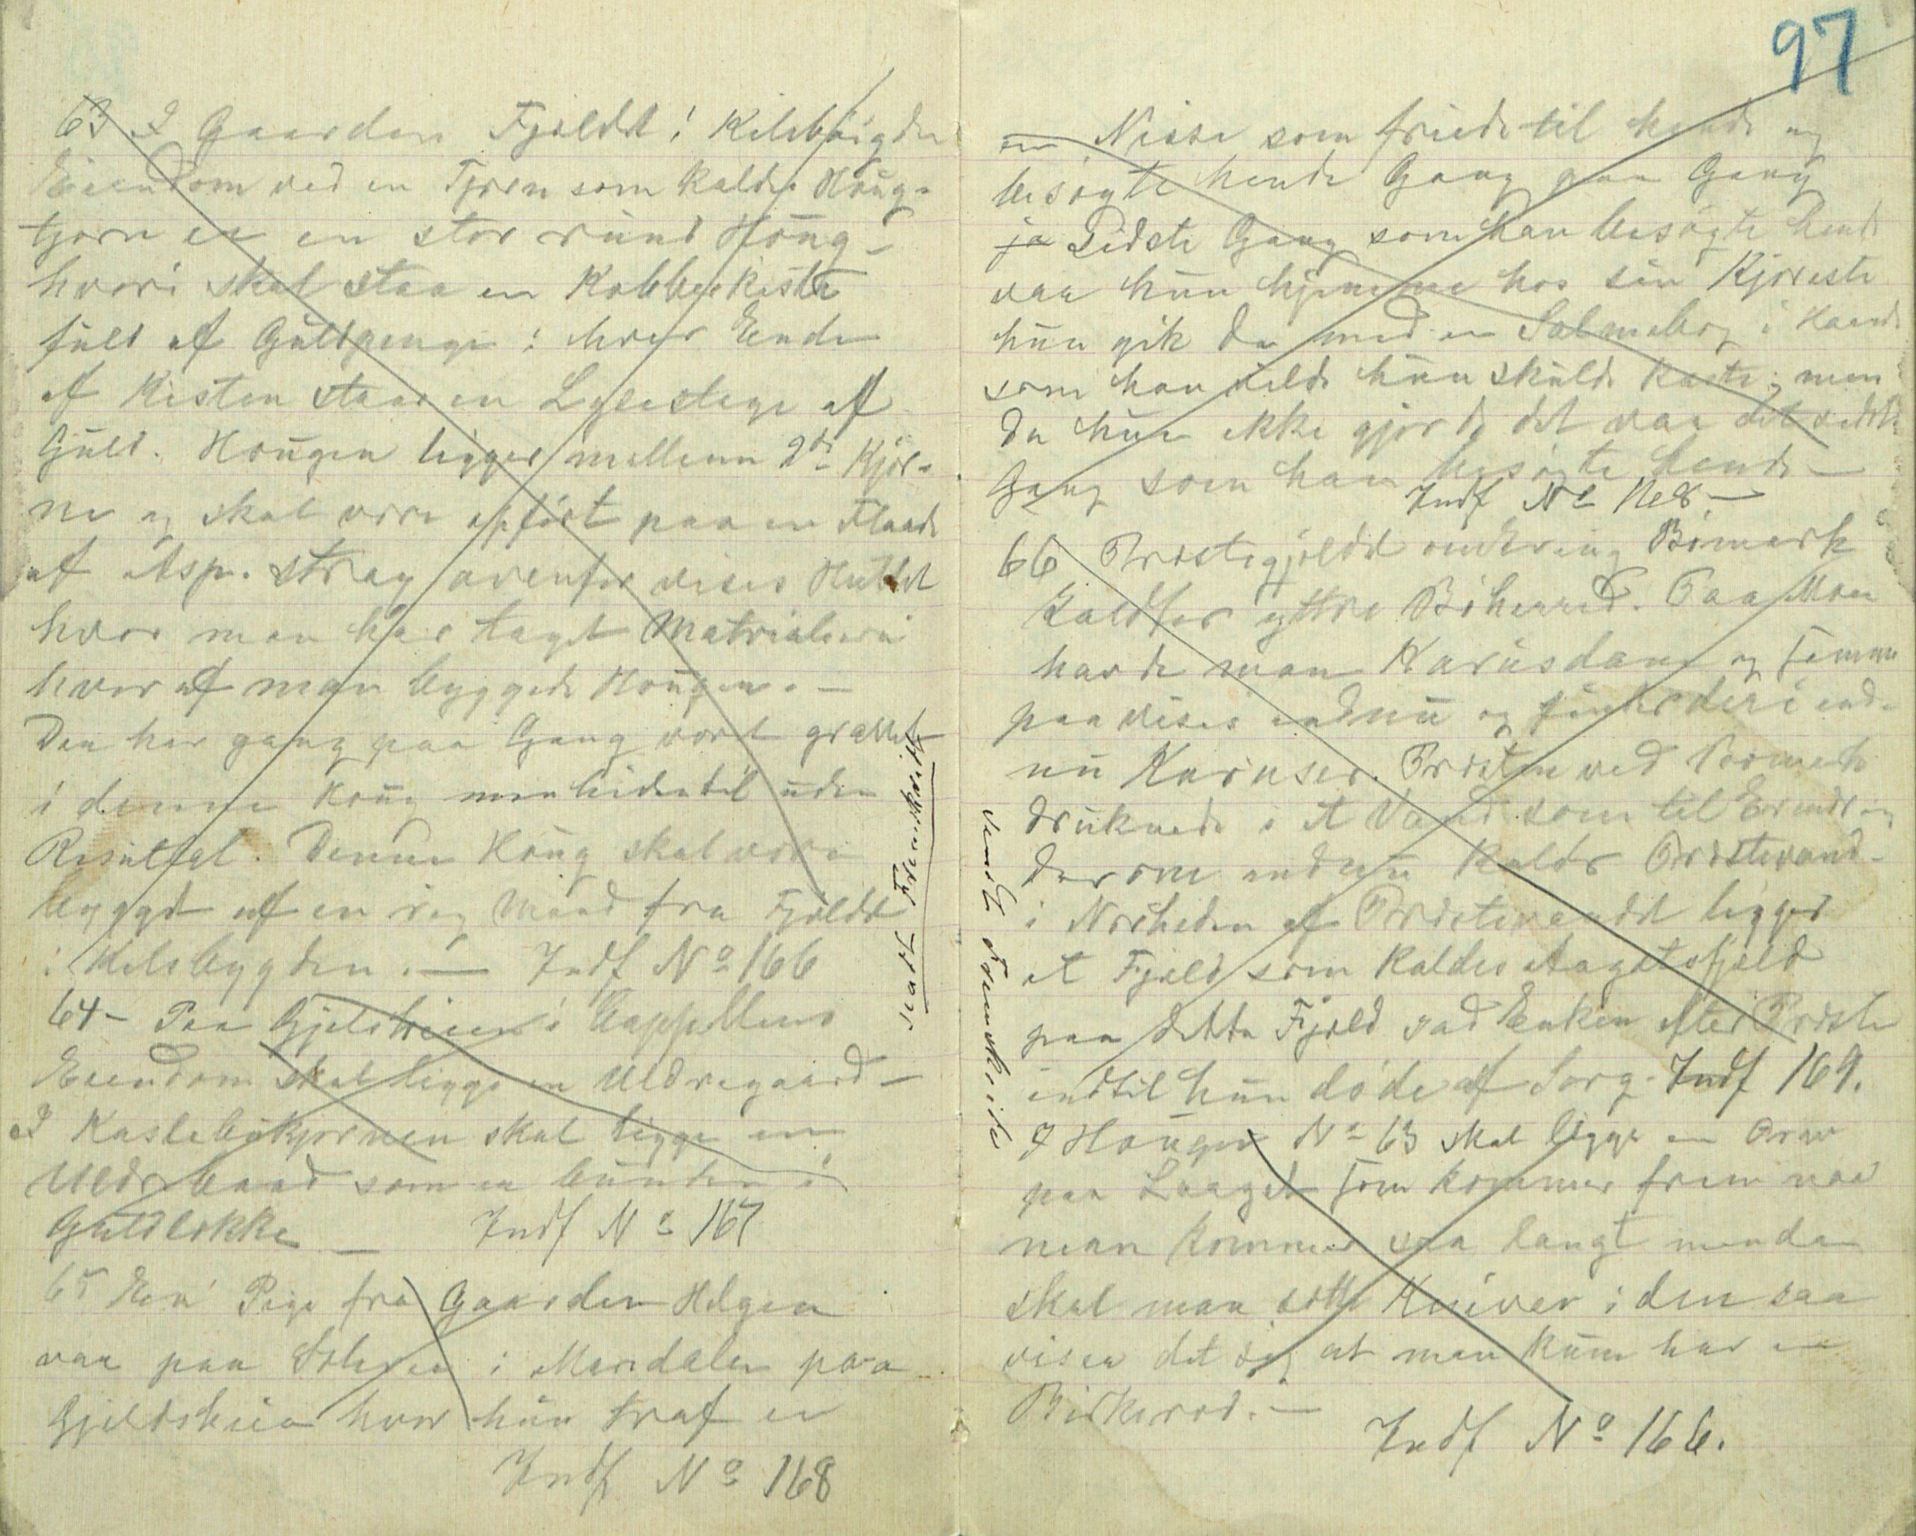 63 I Gaarden Fjeldet i Kilebøigden
Eiendom ved en Tjern som kaldes Houg-
tjern er en stor rund Houg
hvori skal staa en Kobberkiste
fuld af Guldpenge i hver Ende
af Kisten staar en Lysestage af
Guld. Hougen ligger mellem 2de Kjør-
ne og skal være opført paa en Flaade
af Asp. strag ovenfor vises Hullet
hvor man har taget Matrialerne
hvor af man byggede Hougen. —
Den har gang paa Gang vært gravet
i denne Houg men hidentil uden
Resultat. Denne Houg skal være
bygget af en rig Mand fra Fjeldet
i Kilebygden. — Indf No 166
64 – Paa Gjelsheien i Cappellens
Eiendom skal ligge en Uldregaard —
I Kaslebøkjernen skal ligge en
Uldrebaad som er bunden i
Guldlække — Indf No 167
65 Een Pige fra Gaarden Helgen
var paa Sæteren i Mardalen paa
Gjeldsheien hvor hun traf en
Indf No 168
sendt Fremskridt
97
en Nisse som friede til hende og
besøgte hende Gang paa Gang
ja Sidste Gang som han besøgte hende
var hun hjemme hos sin Kjæreste
hun gik da med en Salmebog i Haand
som han vilde hun skulde kaste; men
da hun ikke gjorde det var det sidste
Gang som han besøgte hende —
Indf No 168 —
66 Præstegjeldet omkring Bømark
kaldtes yttre Bøherred. Paa Moen
havde man Karusdam og Tomten
paavises endnu og finder deri end-
nu Karuser. Præsten ved Bømark
druknede i et Vand som til Erindring
derom endnu kaldes Præstevand-
i Nærheden af Præstevandet ligger
et Fjeld som kaldes Aagotsfjeld
paa dette Fjeld sad Enken efter Præsten
indtil hun døde af Sorg. Indf 169.
I Hougen No 63 skal ligge en Orm
paa Laaget som kommer frem naar
man kommer saa langt men da
skal man sætte Kniver i den saa
viser det sig at man kun har en
Birkerod. —
Indf No 166.
sendt Fremskridt